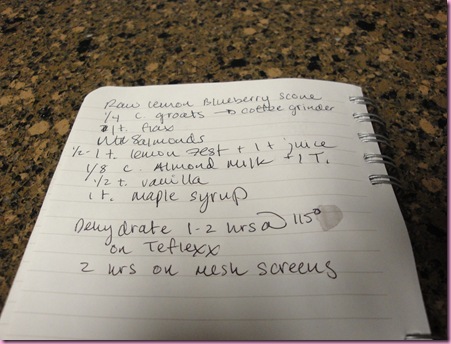 Raw lemon Blueberry scone
1/4 c. groats → coffee grinder
1 t. flax
8 almonds
1/2 - 1 t. lemon zest + 1 t juice
1/8 c. Almond milk + 1 T.
1/2 t. vanilla
1 t. maple syrup
Dehydrate 1-2 hrs @ 115°
on Teflexx
2 hrs on mesh screens